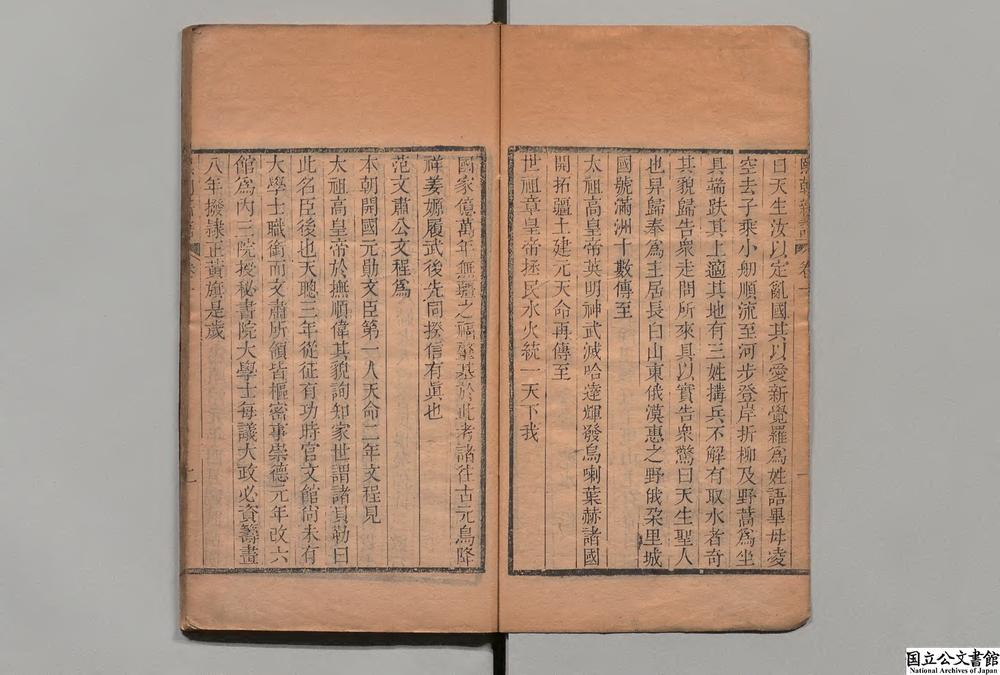 熙朝新語 卷一 一
曰天生汝以定亂國其以愛新覺羅爲姓語畢母凌
空去子乘小舠順流至河步登岸折柳及野蒿爲坐
具端趺其上適其地有三姓搆兵不解有取水者奇
其貌歸告衆走問所來具以實告衆驚曰天生聖人
也舁歸奉爲主居長白山東俄漠惠之野俄朶里城
國號滿洲十數傳至
太祖高皇帝英明神武滅哈達輝發烏喇葉赫諸國
開拓疆土建元天命再傳至
世祖章皇帝拯民水火統一天下我
國家億萬年無疆之福肇基於此考諸往古元鳥降
祥姜嫄履武後先同揆信有眞也
范文肅公文程爲
本朝開國元勛文臣第一人天命二年文程見
太祖高皇帝於撫順偉其貌詢知家世謂諸貝勒曰
此名臣後也天聰三年從征有功時官文館尙未有
大學士職銜而文肅所領皆樞密事崇德元年改六
館爲內三院授秘書院大學士每議大政必資籌畫
八年撥隸正黃旗是歲
国立公文書館
National Archives of Japan